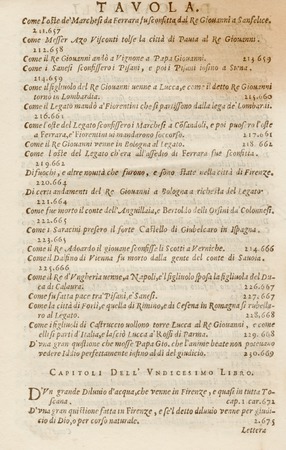 TAVOLA.
Come l'oste de' Marchesi da Ferrara fu sconfitta dal Re Giouanni à Sanfelice.
211.657
Come Messer Azo Visconti tolse la città di Pauia al Re Giouanni.
212.658
Come il Re Giouanni andò a Vignone a Papa Giouanni. 213 659
Come i Sanesi sconfissero i Pisani, e poi i Pisani infino a Siena.
214.659
Come il figliuolo del Re Giouanni venne a Lucca, e com' il detto Re Giouanni
torno in Lombardia. 215.660
Come il Legato mandò a' Fiorentini che si partissono dalla lega de' Lombardi.
216.661
Come l'oste del Legato sconfissero i Marchesi a Cosandoli, e poi puose l'oste
a Ferrara, e' Fiorentini vi mandorono soccorso. 217.061
Come il Re Giouanni venne in Bologna al Legato. 218 662
Come l'oste del Legato ch'era all'assedio di Ferrara fue sconfitta.
219.662
Di fuochi, e altre nouità che furono, e sono state nella città di Firenze.
220.664
Di certi andamenti del Re Giouanni a Bologna a richesta del Legato
221.664
Come fue morto il conte dell'Anguillaia, e Bertoldo delli Orsini da' Colonnesi.
222.665
Come i Saracini presero il forte Castello di Giubelcaro in Ispagna.
223.665
Come il Re Adoardo il giouane sconfisse li Scotti a Vernicche. 224.666
Come il Dalfino di Vienna fu morto dalla gente del conte di Sauoia.
225.666
Come il Re d'Vngheria venne a Napoli, e 'l figliuolo sposa la figliuola del Duca
di Calaura. 226.667
Come fu fatta pace tra' Pisani, e' Sanesi. 227.667
Come la città di Forlì, e quella di Rimino, e di Cesena in Romagna si rubellaro
al Legato. 228,668
Come i figliuoli di Castruccio uollono torre Lucca al Re Giouanni, e come
elli si partì d'Italia, e lasciò Lucca a' Rossi di Parma. 229.668
D'una gran questione che messe Papa Gio. che l'anime beate non poteuano
vedere Iddio perfettamente insino al dì del giudicio. 230.669
CAPITOLI DELL' VNDICESIMO LIBRO.
D'Vn grande Diluuio d'acqua, che venne in Firenze, e quasi in tutta Toscana.
cap.1 car.672
D'vna gran quistione fatta in Firenze, e se 'l detto diluuio venne per giudicio
di Dio, o per corso naturale. 2.675
Lettera